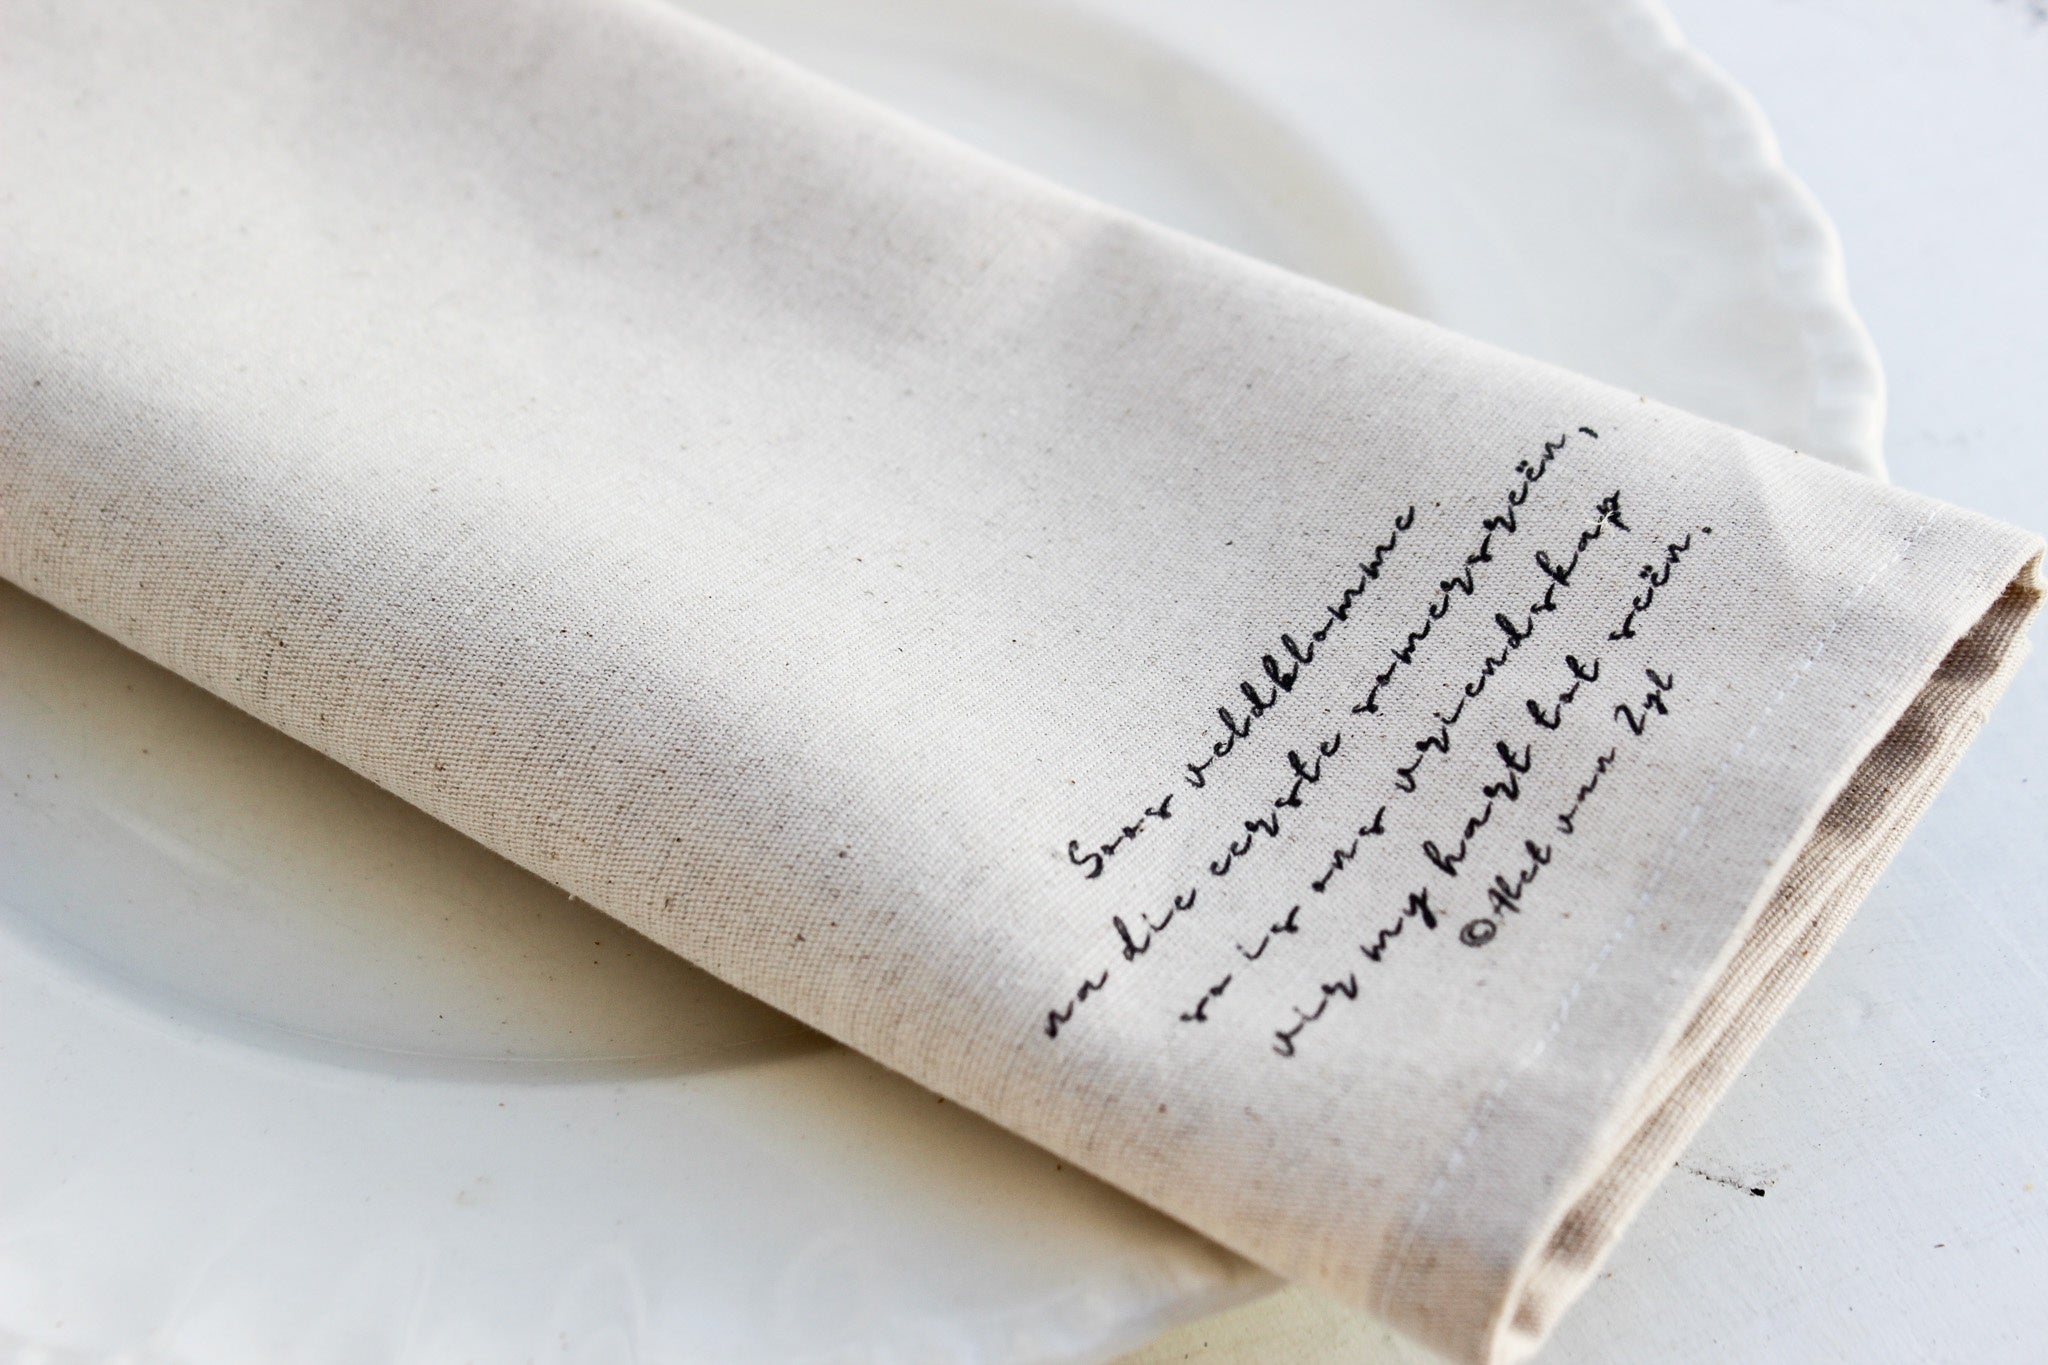 Soos veldblomme
na die eerste somersreën,
so is ons vriendskap
vir my hart tot seën.
© Athel van Zyl